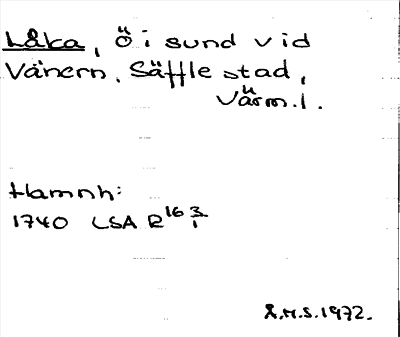 Låka, ö i sund vid
Vänern, Säffle stad,
Värm.l.
Hamnh:
1740 LSA R 16 3/1
Å.H.S. 1972.